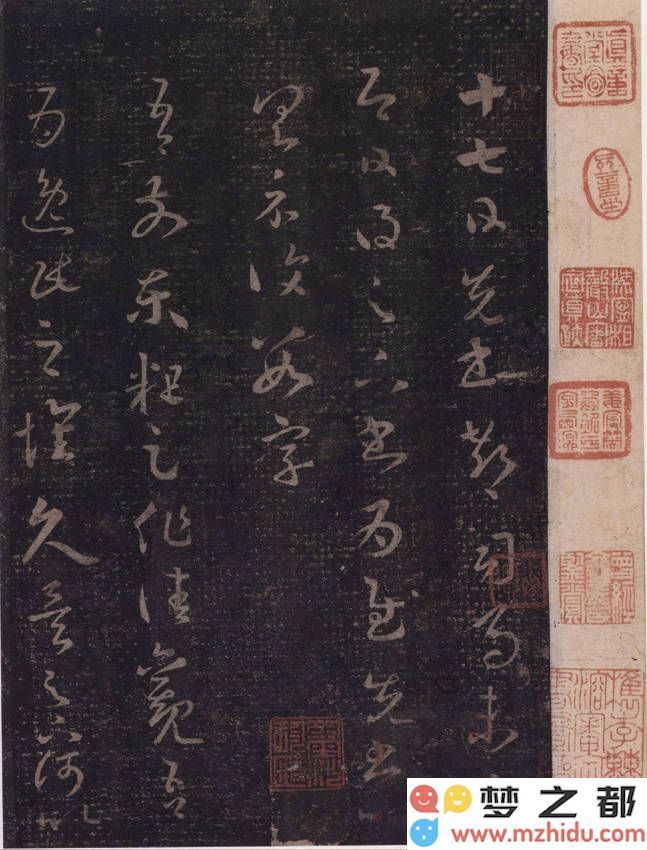 十七日先書郗司馬未
即日得足下書為慰先書以
具示復數字
吾前東粗足作佳觀吾
為逸民之懷久矣足下何以
梦之都
www.mzhidu.com